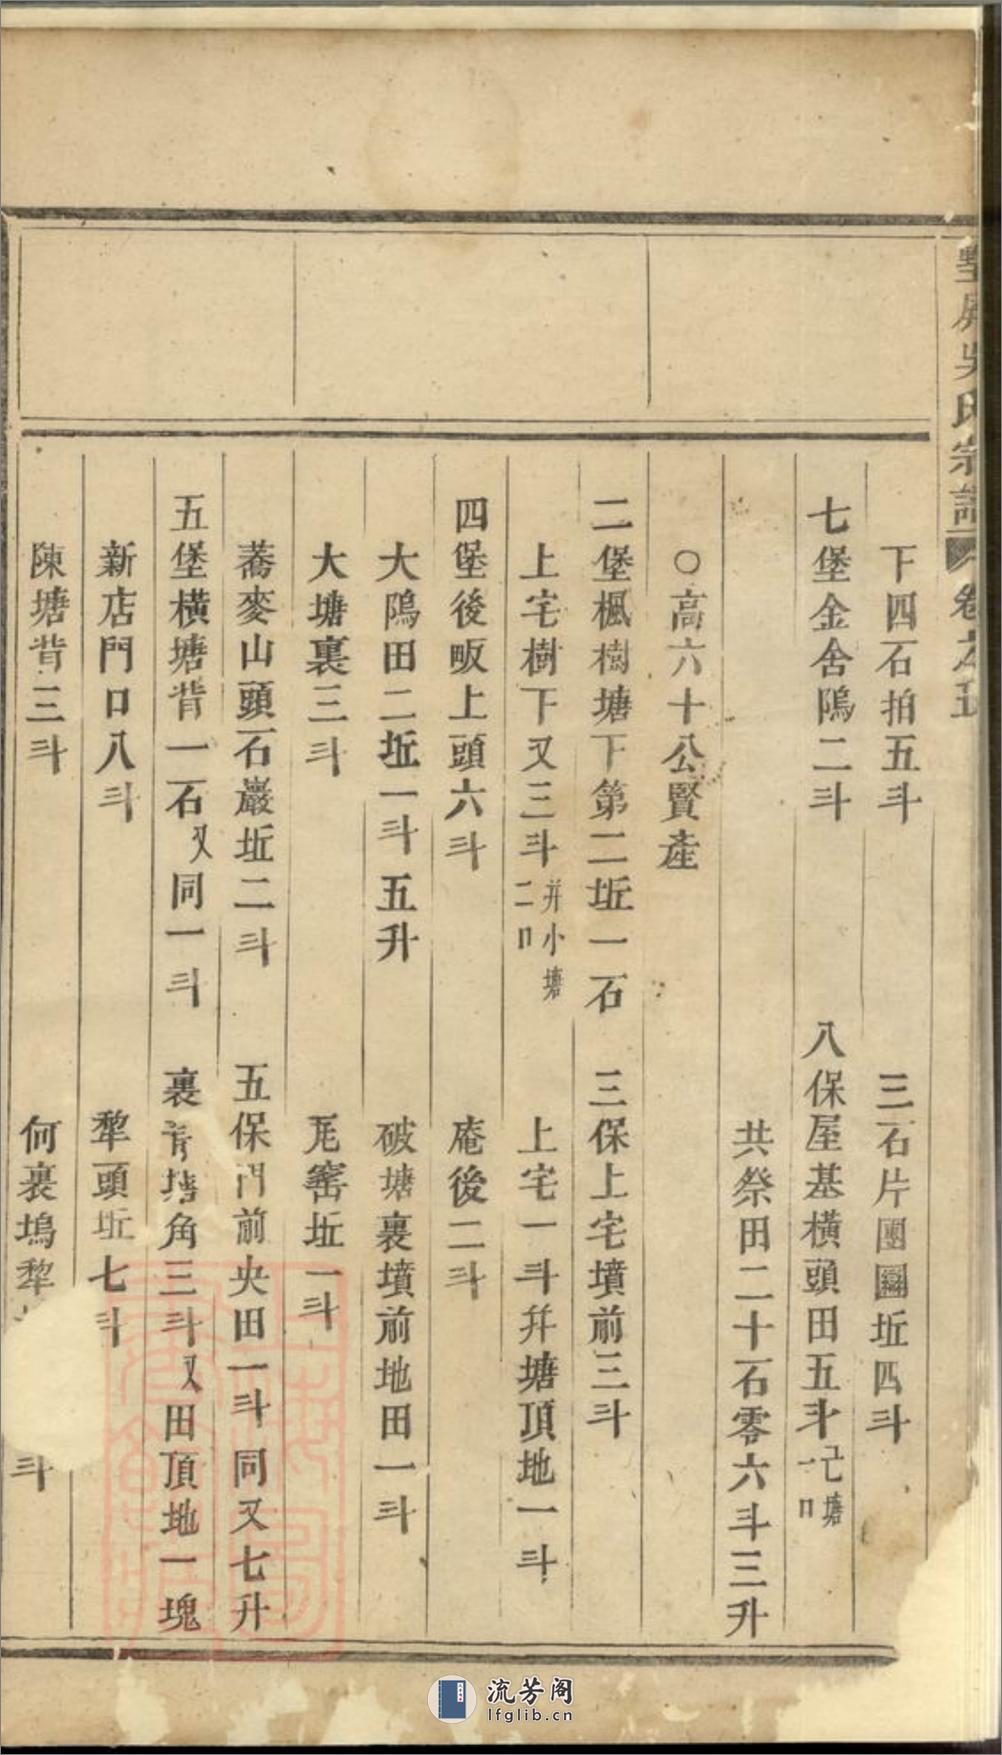 屏吳氏宗譜 卷之
下四石拍五斗 三石片團圝坵四斗
七堡金舍隖二斗 八保屋基橫頭田五斗己塘一口
共祭田二十石零六斗三升
○高六十公賢產
二堡楓樹塘下第二坵一石 三保上宅墳前三斗
上宅樹下又三斗并小塘二口 上宅一斗幷塘頂地一斗
四堡後畈上頭六斗 庵後二斗
大隖田二坵一斗五升 破塘裏墳前地田一斗
大塘裏三斗 瓦窰坵一斗
蕎麥山頭石巖坵二斗 五保門前央田一斗同又七升
五堡橫塘背一石又同一斗 裏背塘角三斗又田頂地一塊
新店門口八斗 犂頭坵七斗
陳塘背三斗 何裏塢犂 斗
流芳阁
lfglib.cn